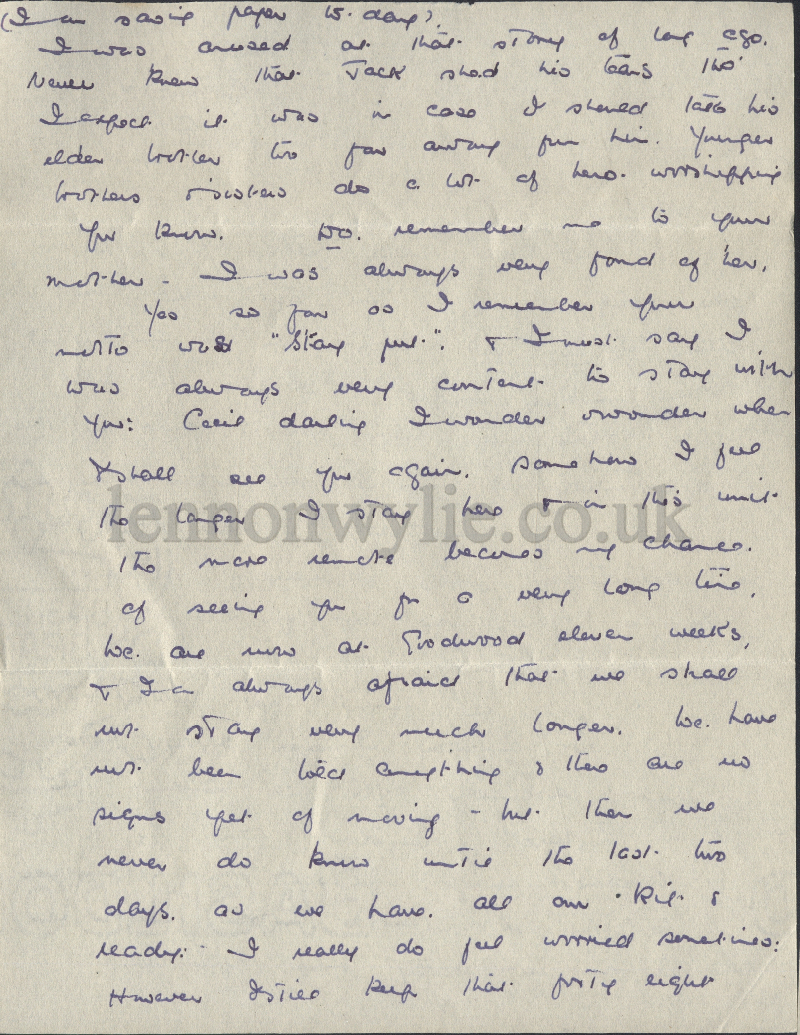 (I am saving paper to-day).
I was amused at that story of long ago.
Never knew that Jack shed his tears tho'
I expect it was in case I should take his
elder brother too far away from him. Younger
brothers & sisters do a lot of hero-worshipping
you know. Do. remember me to your
mother - I was always very fond of her.
Yes so far as I remember your
motto was "Stay put". & I must say I
was always very content to stay with
you: Cecil darling I wonder & wonder when
I shall see you again. Somehow I feel
the longer I stay here & in this unit
lennonwylie.co.uk
the more remote becomes my chance.
of seeing you for a very long time.
We. are now at Goodwood eleven weeks,
& I am always afraid that we shall
not stay very much longer. We. have
not been told anything & there are no
signs yet of moving - but then we
never do know until the last two
days. as we have. all our kit &
ready: I really do feel worried sometimes:
However I still keep that forty eight